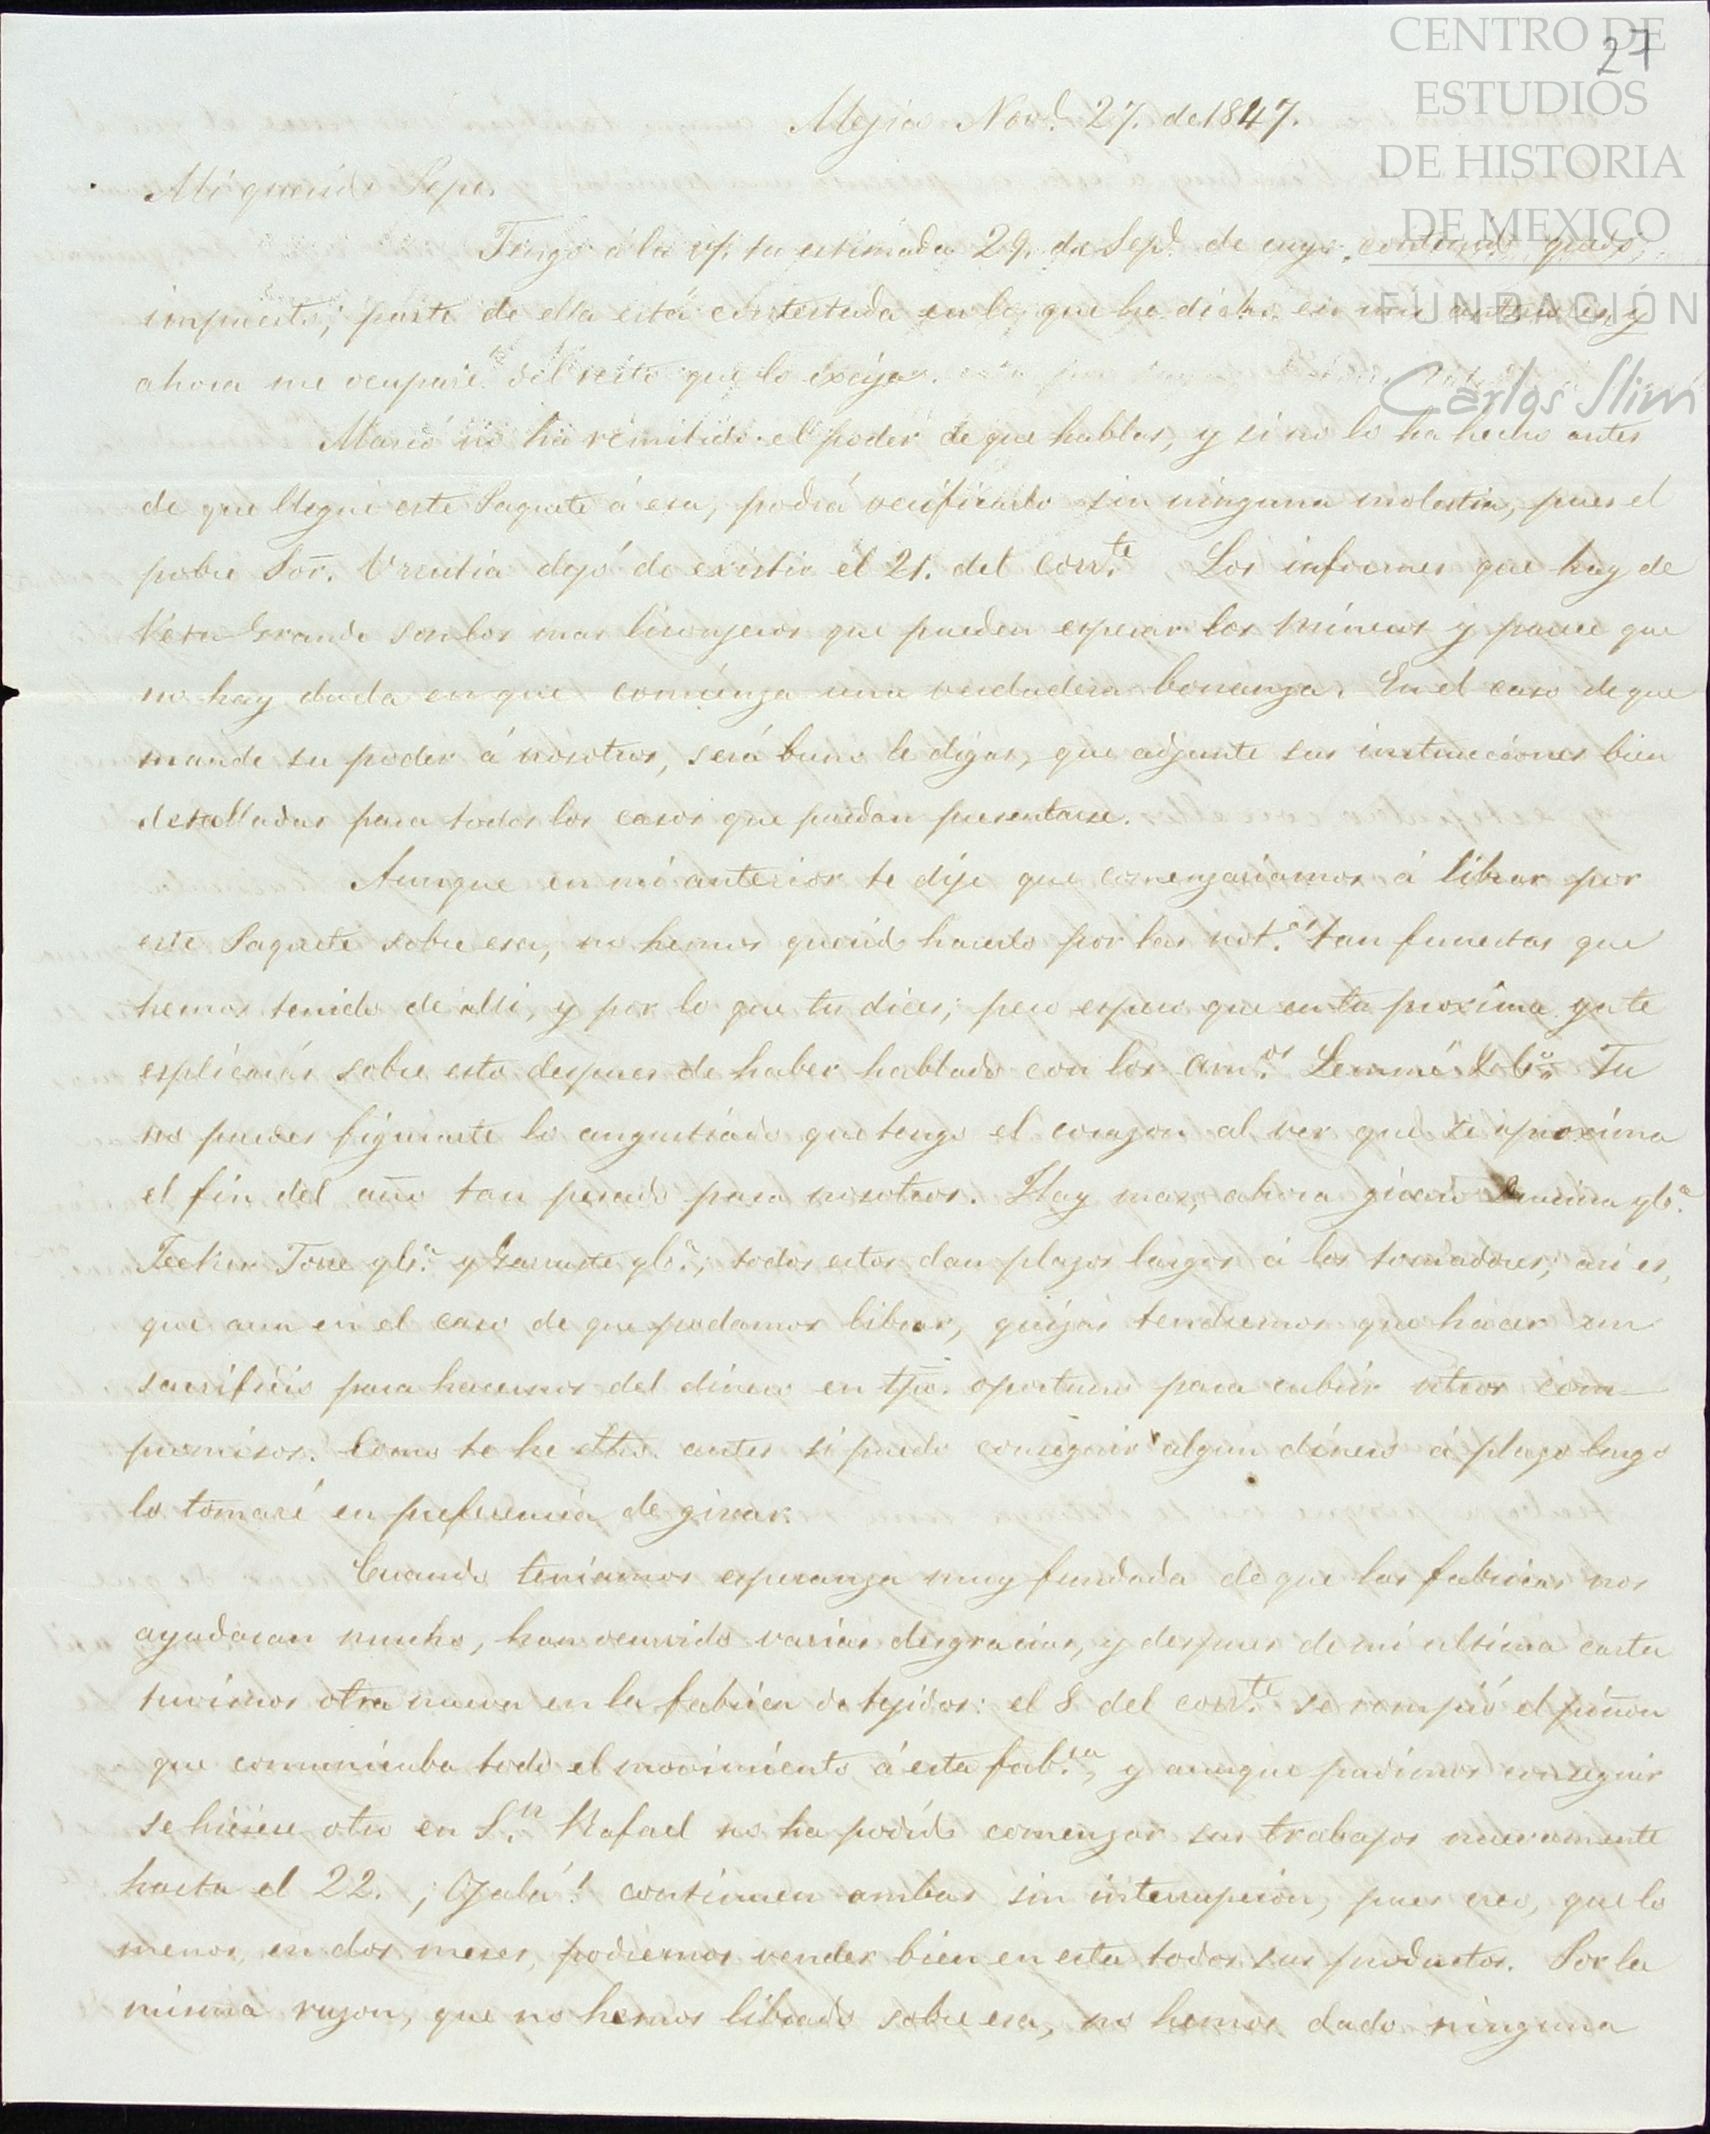 CENTRO DE
ESTUDIOS
DE HISTORIA
DE MEXICO
FUNDACIÓN
Carlos Slim
27
Mejico Nove. 27. de 1847.
Mi querido Pepe.
Tengo á la vta. tu estimada 29. de Sepe. de cuyo contenido quedo
impuesto; parte de ella está contestada en lo que he dicho en mis anteriores y
ahora me ocuparé del resto que lo exija.
Mació no ha remitido el poder de que hablas, y si no lo ha hecho antes
de que llegue este Paquete á esa, podrá verificarlo sin ninguna molestia, pues el
pobre Sor. Urrutia dejó de existir el 21. del corrte. Los informes que hay de
Veta Grande son los mas lisonjeros que pueden esperar los mineros y parece que
no hay duda en que comienza una verdadera bonanza. En el caso de que
mande su poder á nosotros, será bueno le digas, que adjunte sus instrucciones bien
detalladas para todos los casos que puedan presentarse.
Aunque en mi anterior te dije que comenzariamos á librar por
este Paquete sobre esa, no hemos querido hacerlo por las notas. tan funestas que
hemos tenido de alli, y por lo que tu dices; pero espero que en tu proxima ya te
esplicarás sobre esto despues de haber hablado con los amos. Lemmé & Ca. Tu
no puedes figurarte lo angustiado que tengo el corazon al ver que se aproxima
el fin del año tan pesado para nosotros. Hay mas, ahora giran ya Ca.
Jecker Torre y Ca. y Garruste y Ca., todos estos dan plazos largos á los tomadores; asi es,
que aun en el caso de que podamos librar, quizás tendremos que hacer un
sacrificio para hacernos del dinero en tpo. oportuno para cubrir ntros com-
promisos. Como te he dho. antes si puedo conseguir algun dinero á plazo largo
lo tomaré en preferencia de girar.
Cuando teniamos esperanza muy fundada de que las fabricas nos
ayudaran mucho, han ocurrido varias desgracias, y despues de mi ultima carta
tuvimos otra nueva en la fabrica de tejidos: el 8 del corrte. se rompió el piñon
que comunicaba todo el movimiento á esta fabca., y aunque pudimos conseguir
se hiciese otro en Sn. Rafael no ha podido comenzar sus trabajos nuevamente
hasta el 22. ¡Ojalá! continuen ambas sin interrupcion, pues creo, que lo
menos, en dos meses, podremos vender bien en esta todos sus productos. Por la
misma razon, que no hemos librado sobre esa, no hemos dado ninguna